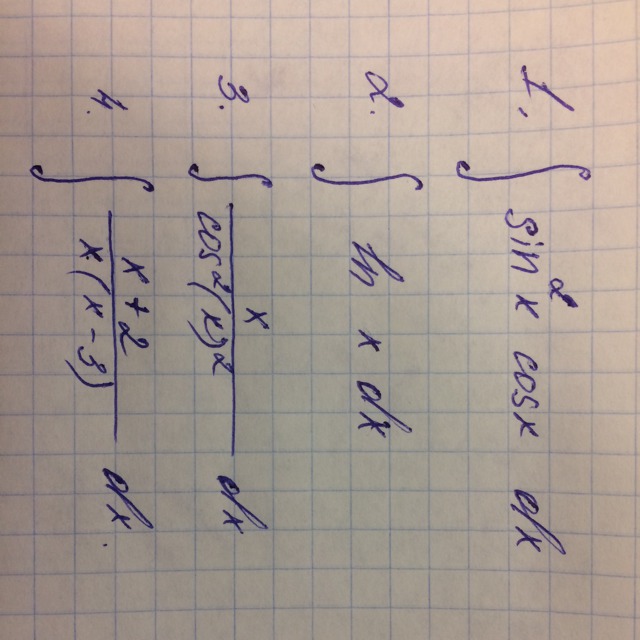 1. ∫ sin² x cosx dx
2. ∫ ln x dx
3. ∫ x / cos²(x)² dx
4. ∫ x + 2 / x(x - 3) dx.